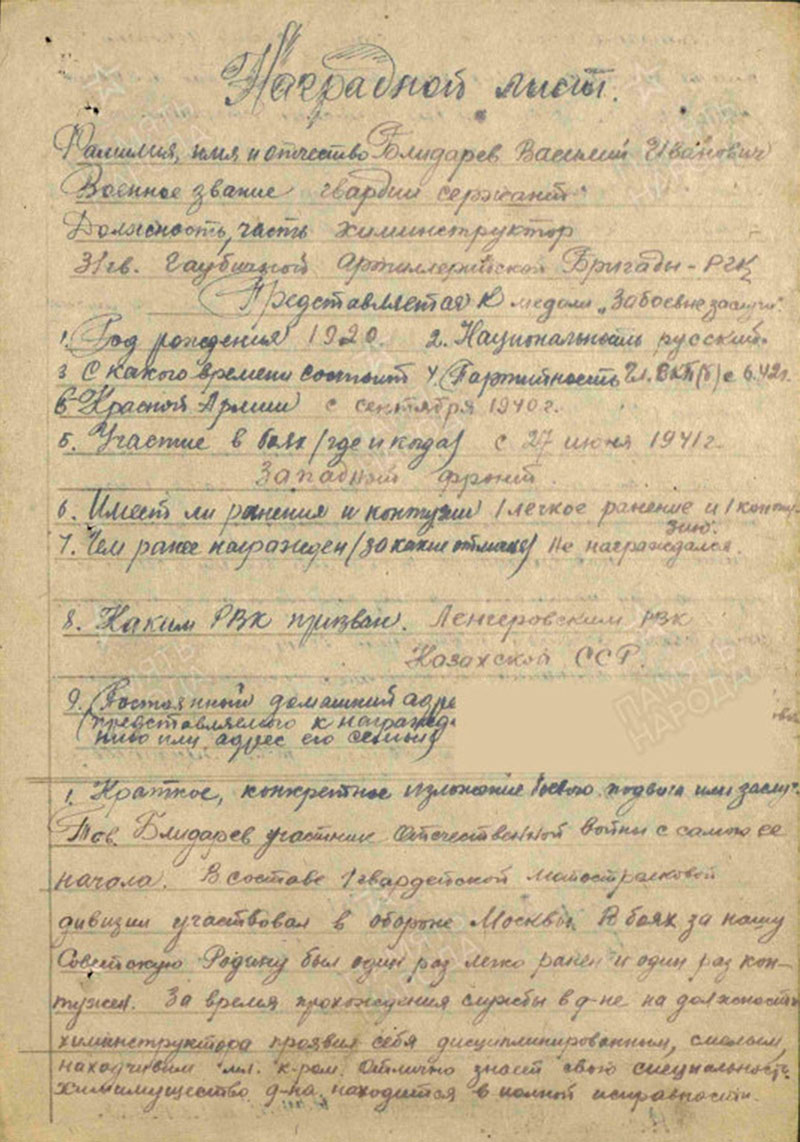 Наградной лист.
Фамилия, имя и отчество Блидарев Василий Иванович
Военное звание гвардии сержант
Должность, часть химинструктор
31 гв. Гаубичной Артиллерийской Бригады - РГК
Представляется к медали „За боевые заслуги".
1. Год рождения 1920. 2. Национальность русский.
3 С какого времени состоит 4. Партийность Чл. ВКП(б) с 6.42г.
в Красной Армии с сентября 1940г.
5. Участие в боях (где и когда) с 27 июня 1941г.
Западный фронт.
6. Имеет ли ранения и контузии 1 легкое ранение и 1 конту-
зию.
7. Чем ранее награжден (за какие отличия) Не награждался.
8. Каким РВК призван. Ленгеровским РВК
Казахской ССР.
9. Постоянный домашний адре
(представляемого к награжде
нию или адрес его семьи)
1. Краткое, конкретное изложение боевого подвига или заслуг.
Тов. Блидарев участник Отечественной войны с самого ее
начала. В составе 1 гвардейской мотострелковой
дивизии участвовал в обороне Москвы. В боях за нашу
Советскую Родину был один раз легко ранен и один раз кон-
тужен. За время прохождения службы в д-не на должности
химинструктора проявил себя дисциплинированным, смелым,
находчивым мл. к-ром. Отлично знает свою специальность.
Химимущество д-на находится в полной исправности.
ПАМЯТЬ
НАРОДА